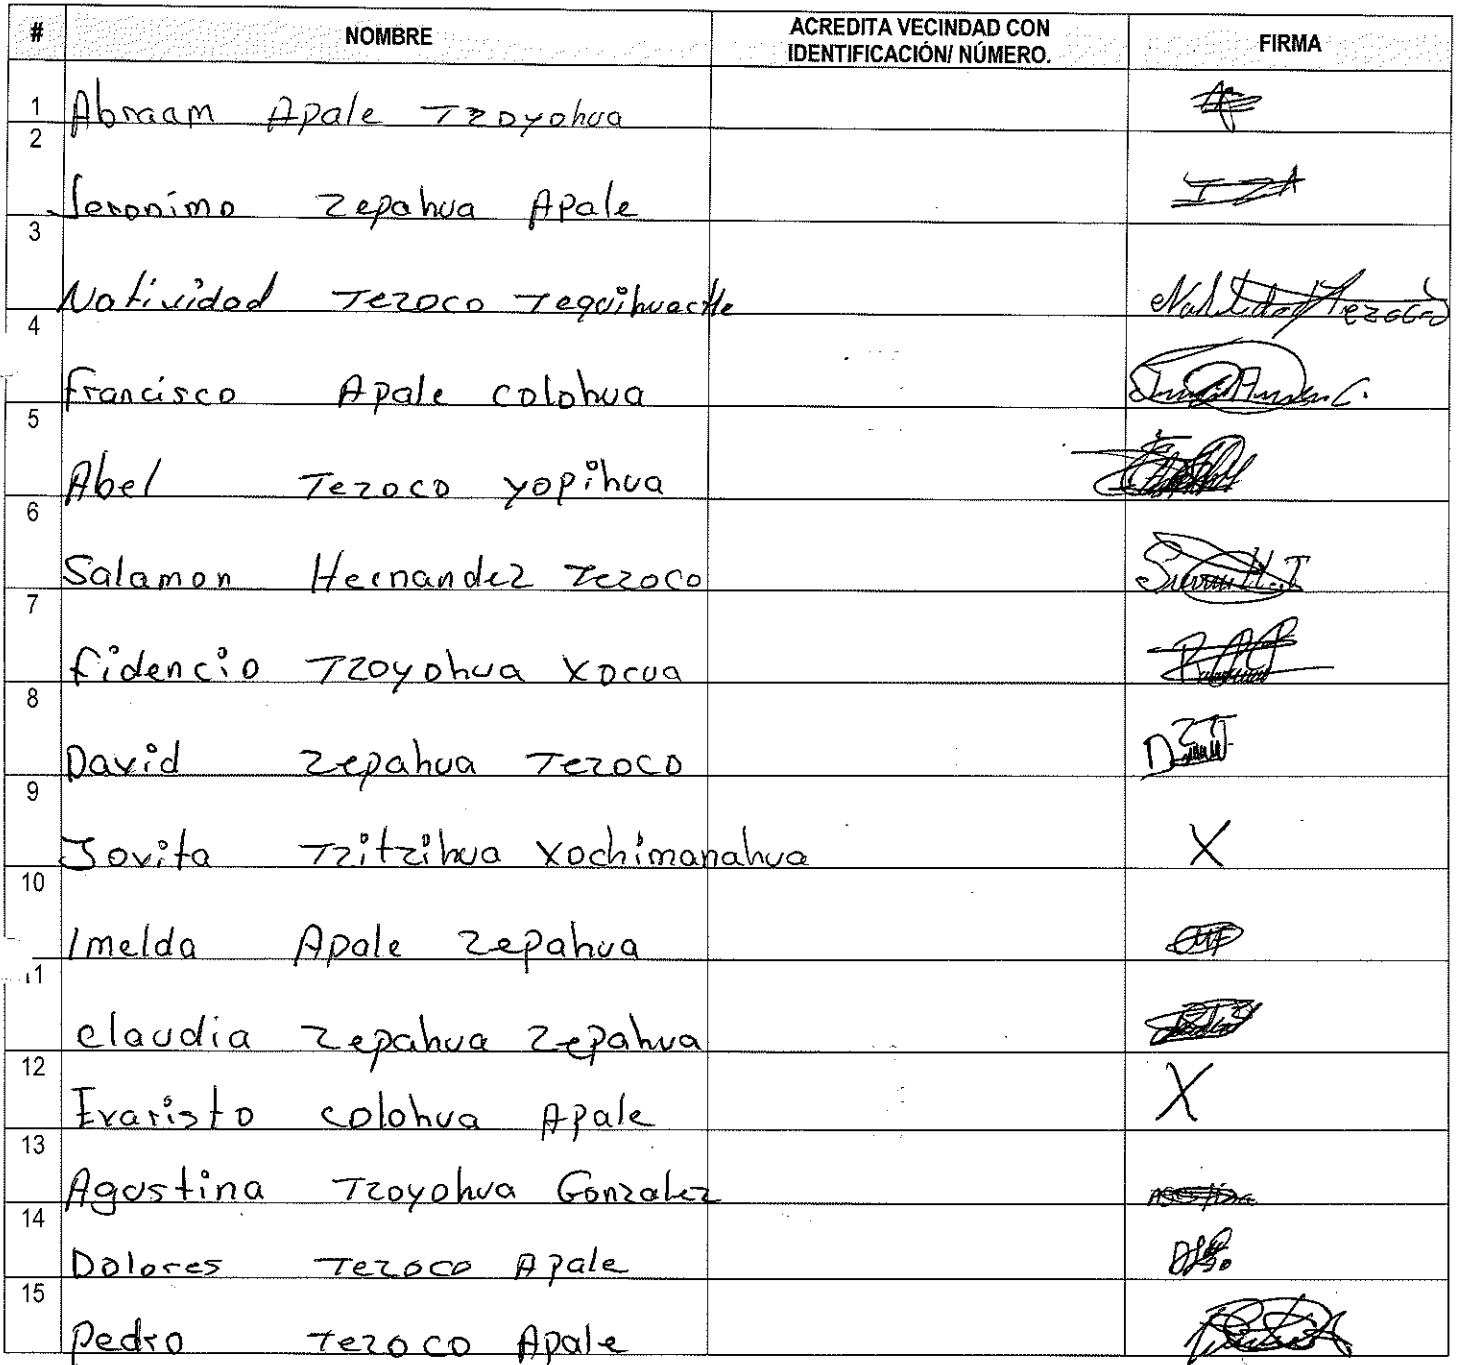 # NOMBRE ACREDITA VECINDAD CON IDENTIFICACIÓN/ NÚMERO. FIRMA
1 Abraam Apale Tzoyohua
2 Jeronimo Zepahua Apale IZA
3 Natividad Tezoco Tequihuactle Natividad Tezoco
4 Francisco Apale colohua
5 Abel Tezoco yopihua
6 Salamon Hernandez Tezoco
7 fidencio Tzoyohua Xocua
8 David Zepahua Tezoco
9 Jovita Tzitzihua Xochimanahua X
10 Imelda Apale Zepahua
11 claudia Zepahua Zepahua
12 Evaristo colohua Apale X
13 Agustina Tzoyohua Gonzalez
14 Dolores Tezoco Apale
15 pedro Tezoco Apale